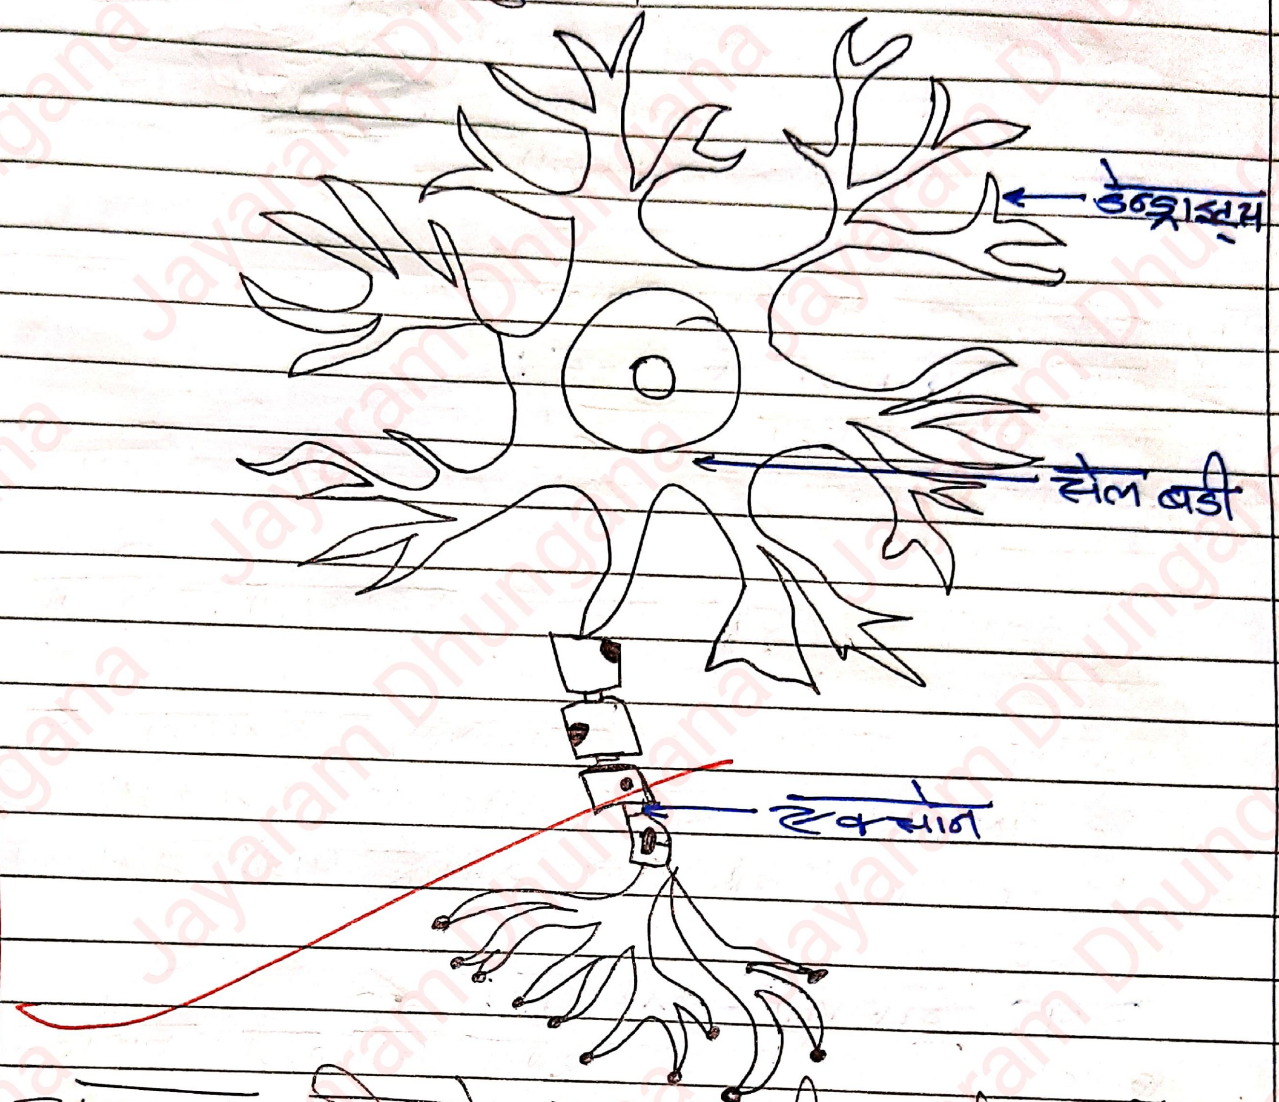 डेन्ड्राइट्स
सेल बडी
एक्सोन
Jayaram Dhungana